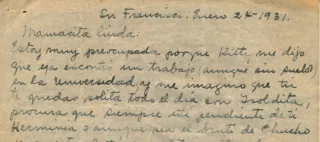 Sn Francisco. Enero 24-1931.
Mamacita linda:
Estoy muy preocupada porque Kitty me dijo
que ya encontró un trabajo (aunque sin sueldo)
en la Universidad, y me imagino que tu
te quedas solita todo el día con Isoldita,
procura que siempre esté pendiente de ti
Herminia o aunque sea el bruto de Chucho